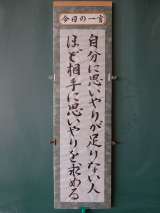 今日の一言
自分に思いやりが足りない人
ほど相手に思いやりを求める